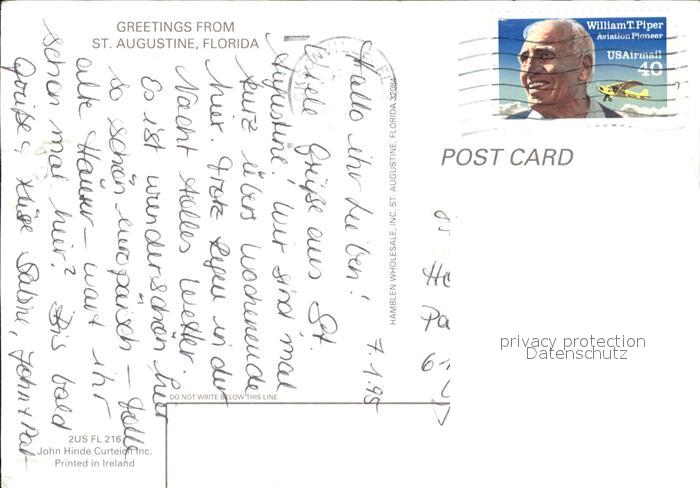 GREETINGS FROM
ST. AUGUSTINE, FLORIDA
7.1.95
Hallo ihr Lieben!
Viele Grüße aus St.
Augustine! Wir sind mal
kurz übers Wochenende
hier. Trotz Regen in der
Nacht tolles Wetter.
Es ist wunderschön hier
so schön europäisch – tolle
alte Häuser – wart ihr
schon mal hier? Bis bald
Grüße & Küße Sabine, John +
DO NOT WRITE BELOW THIS LINE
2US FL 216
John Hinde Curteich Inc.
Printed in Ireland
HAMBLEN WHOLESALE, INC. ST. AUGUSTINE, FLORIDA 32084
William T. Piper
Aviation Pioneer
USAirmail
40
POST CARD
He
Pa
privacy protection
Datenschutz